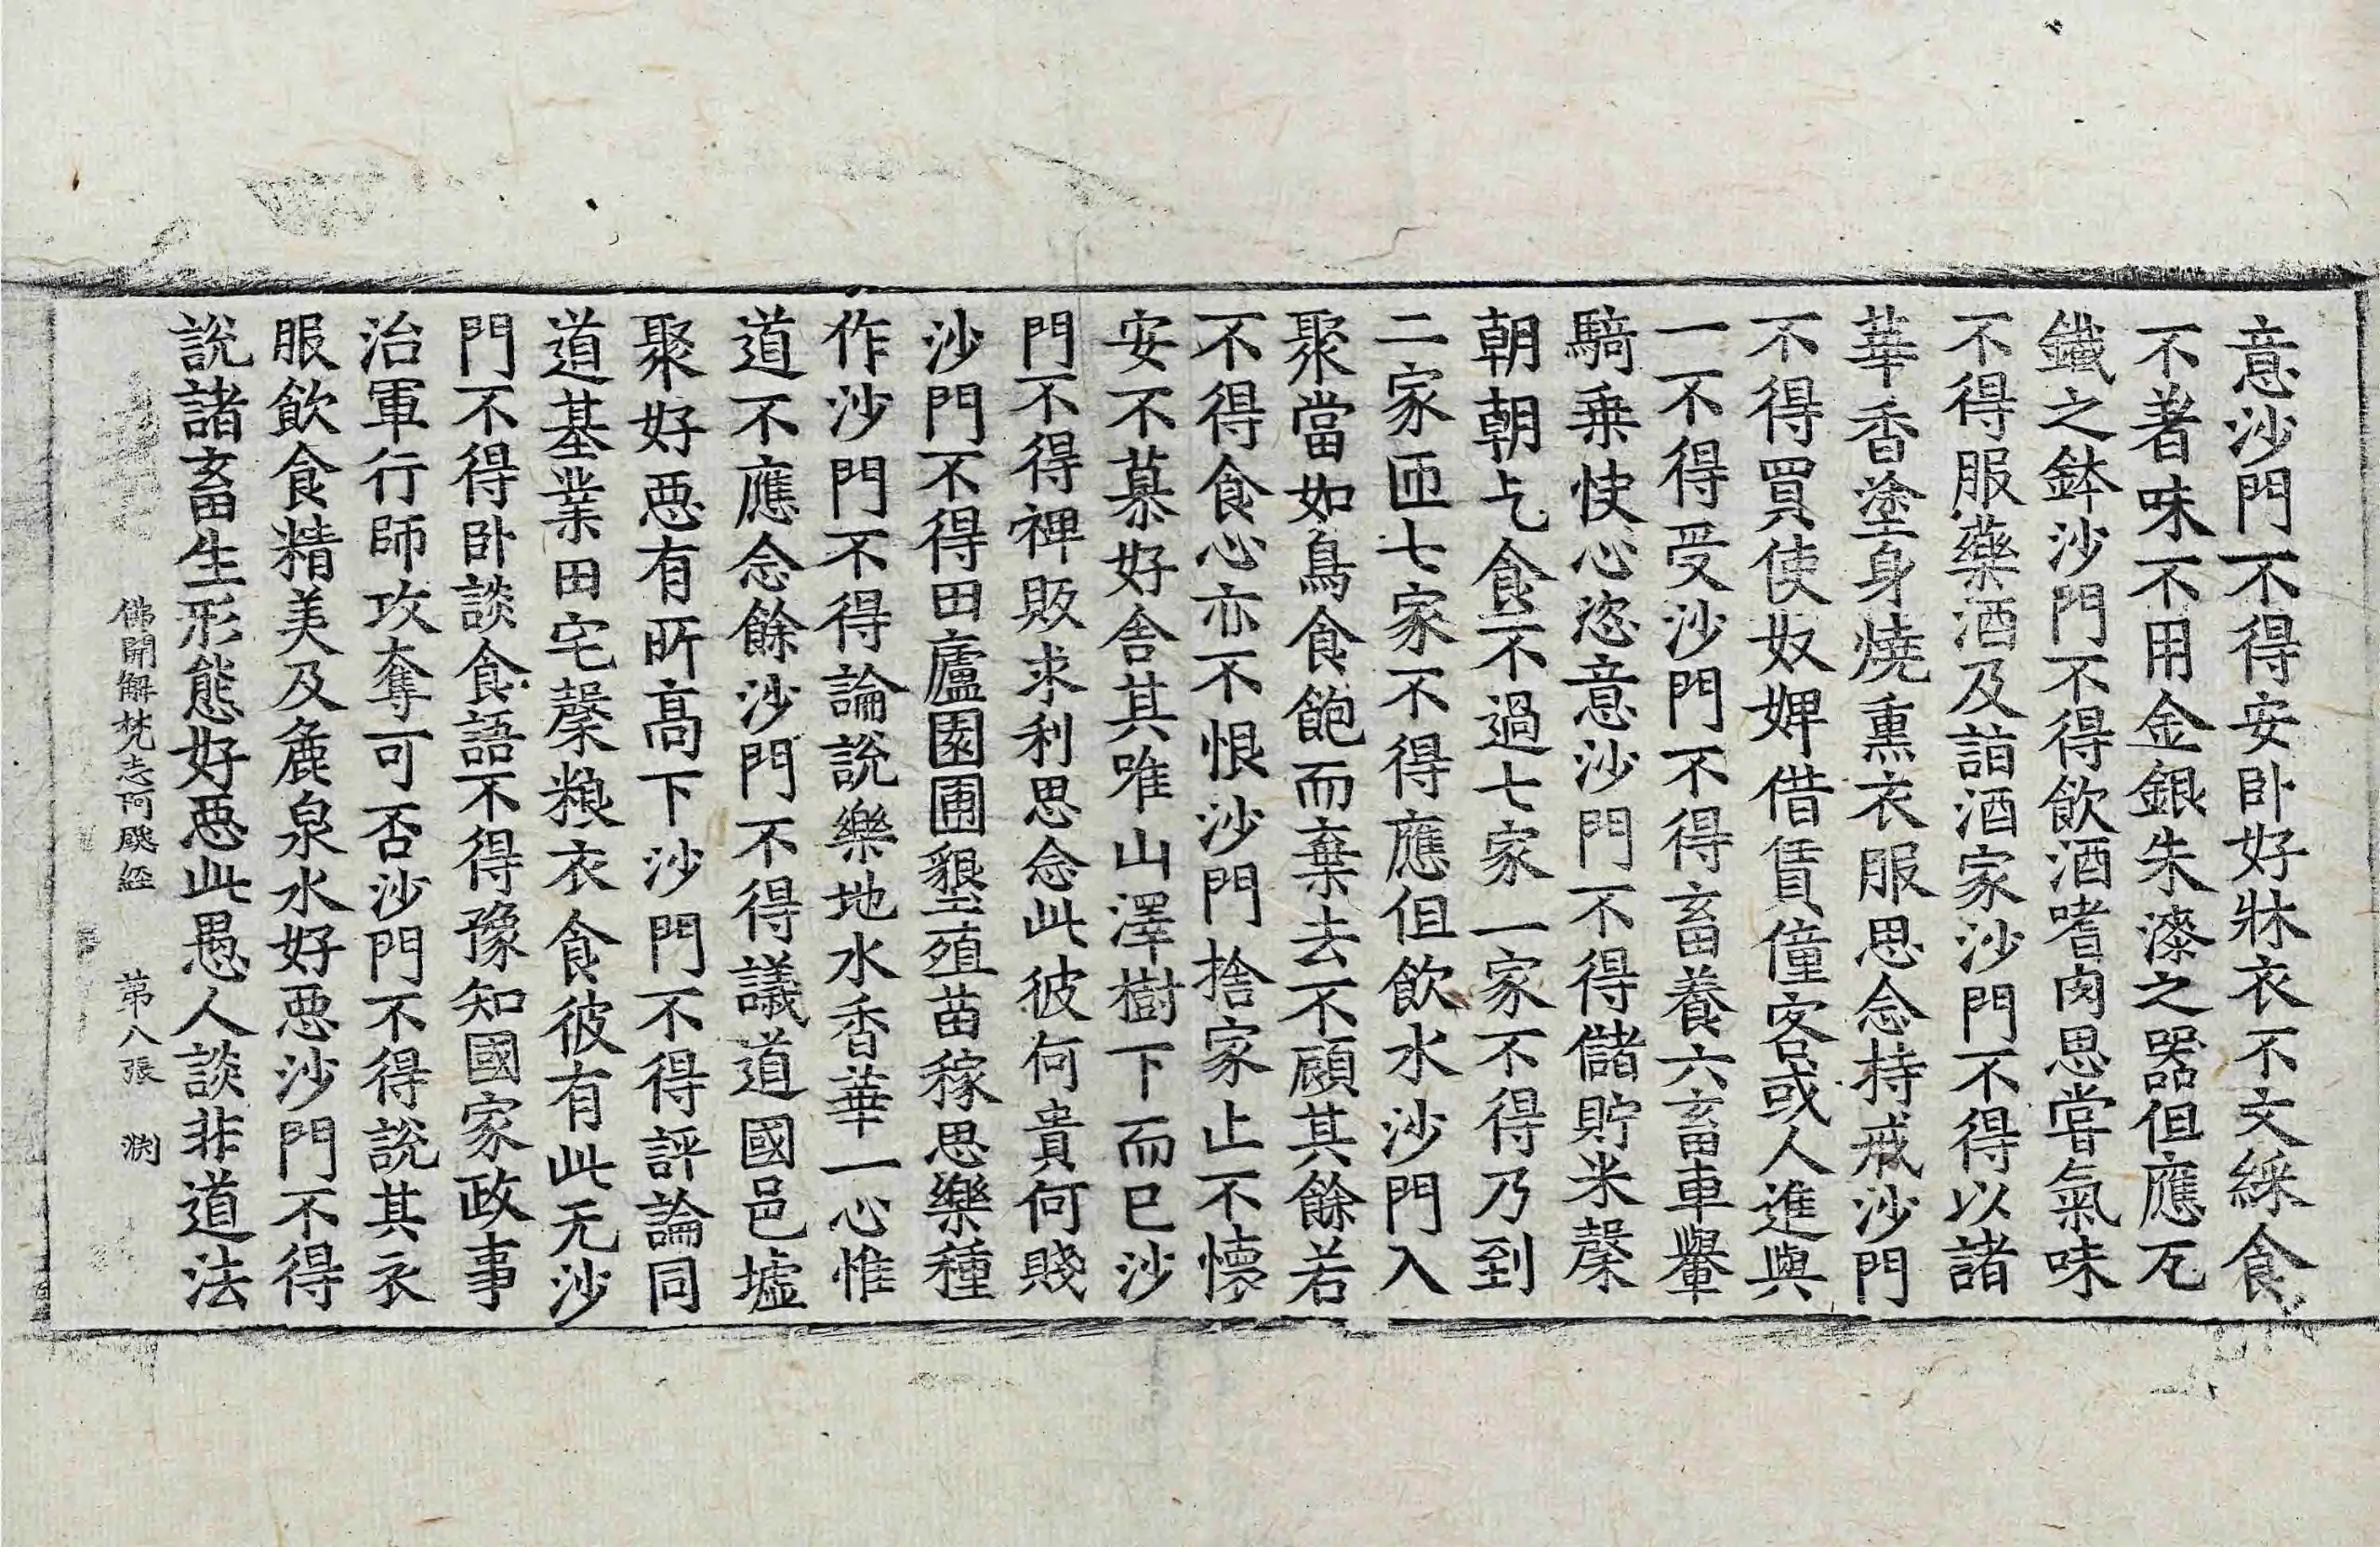 意沙門不得安卧好牀衣不文綵食
不著味不用金銀朱漆之器但應瓦
鐵之鉢沙門不得飲酒嗜肉思嘗氣味
不得服藥酒及詣酒家沙門不得以諸
華香塗身燒熏衣服思念持戒沙門
不得買使奴婢借賃僮客或人進與
一不得受沙門不得畜養六畜車轝
騎乗快心恣意沙門不得儲貯米糓
朝朝乞食不過七家一家不得乃到
二家匝七家不得應但飲水沙門入
聚當如鳥食飽而棄去不顧其餘若
不得食心亦不恨沙門捨家止不懷
安不慕好舍其唯山澤樹下而已沙
門不得裨販求利思念此彼何貴何賤
沙門不得田廬園圃墾殖苗稼思樂種
作沙門不得論說樂地水香華一心惟
道不應念餘沙門不得議道國邑墟
聚好惡有所高下沙門不得評論同
道基業田宅糓粮衣食彼有此无沙
門不得卧談食語不得豫知國家政事
治軍行師攻奪可否沙門不得說其衣
服飲食精美及麁泉水好惡沙門不得
說諸畜生形態好惡此愚人談非道法
佛開解梵志阿颰經 第八張 渕